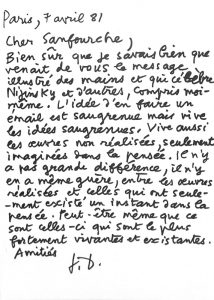 Paris, 7 avril 81
Cher Sanfourche,
Bien sûr que je savais bien que
venait de vous le message
illustré des mains et qui célèbre
Nijinsky et d'autres, compris moi-
même. L'idée d'en faire un
émail est saugrenue mais vive
les idées saugrenues. Vive aussi
les œuvres non réalisées, seulement
imaginées dans la pensée. Il n'y
a pas grande différence, il n'y
en a même guère, entre les œuvres
réalisées et celles qui ont seule-
ment existé un instant dans la
pensée. Peut-être même que ce
sont celles-ci qui sont le plus
fortement vivantes et existantes.
Amitiés
J. D.